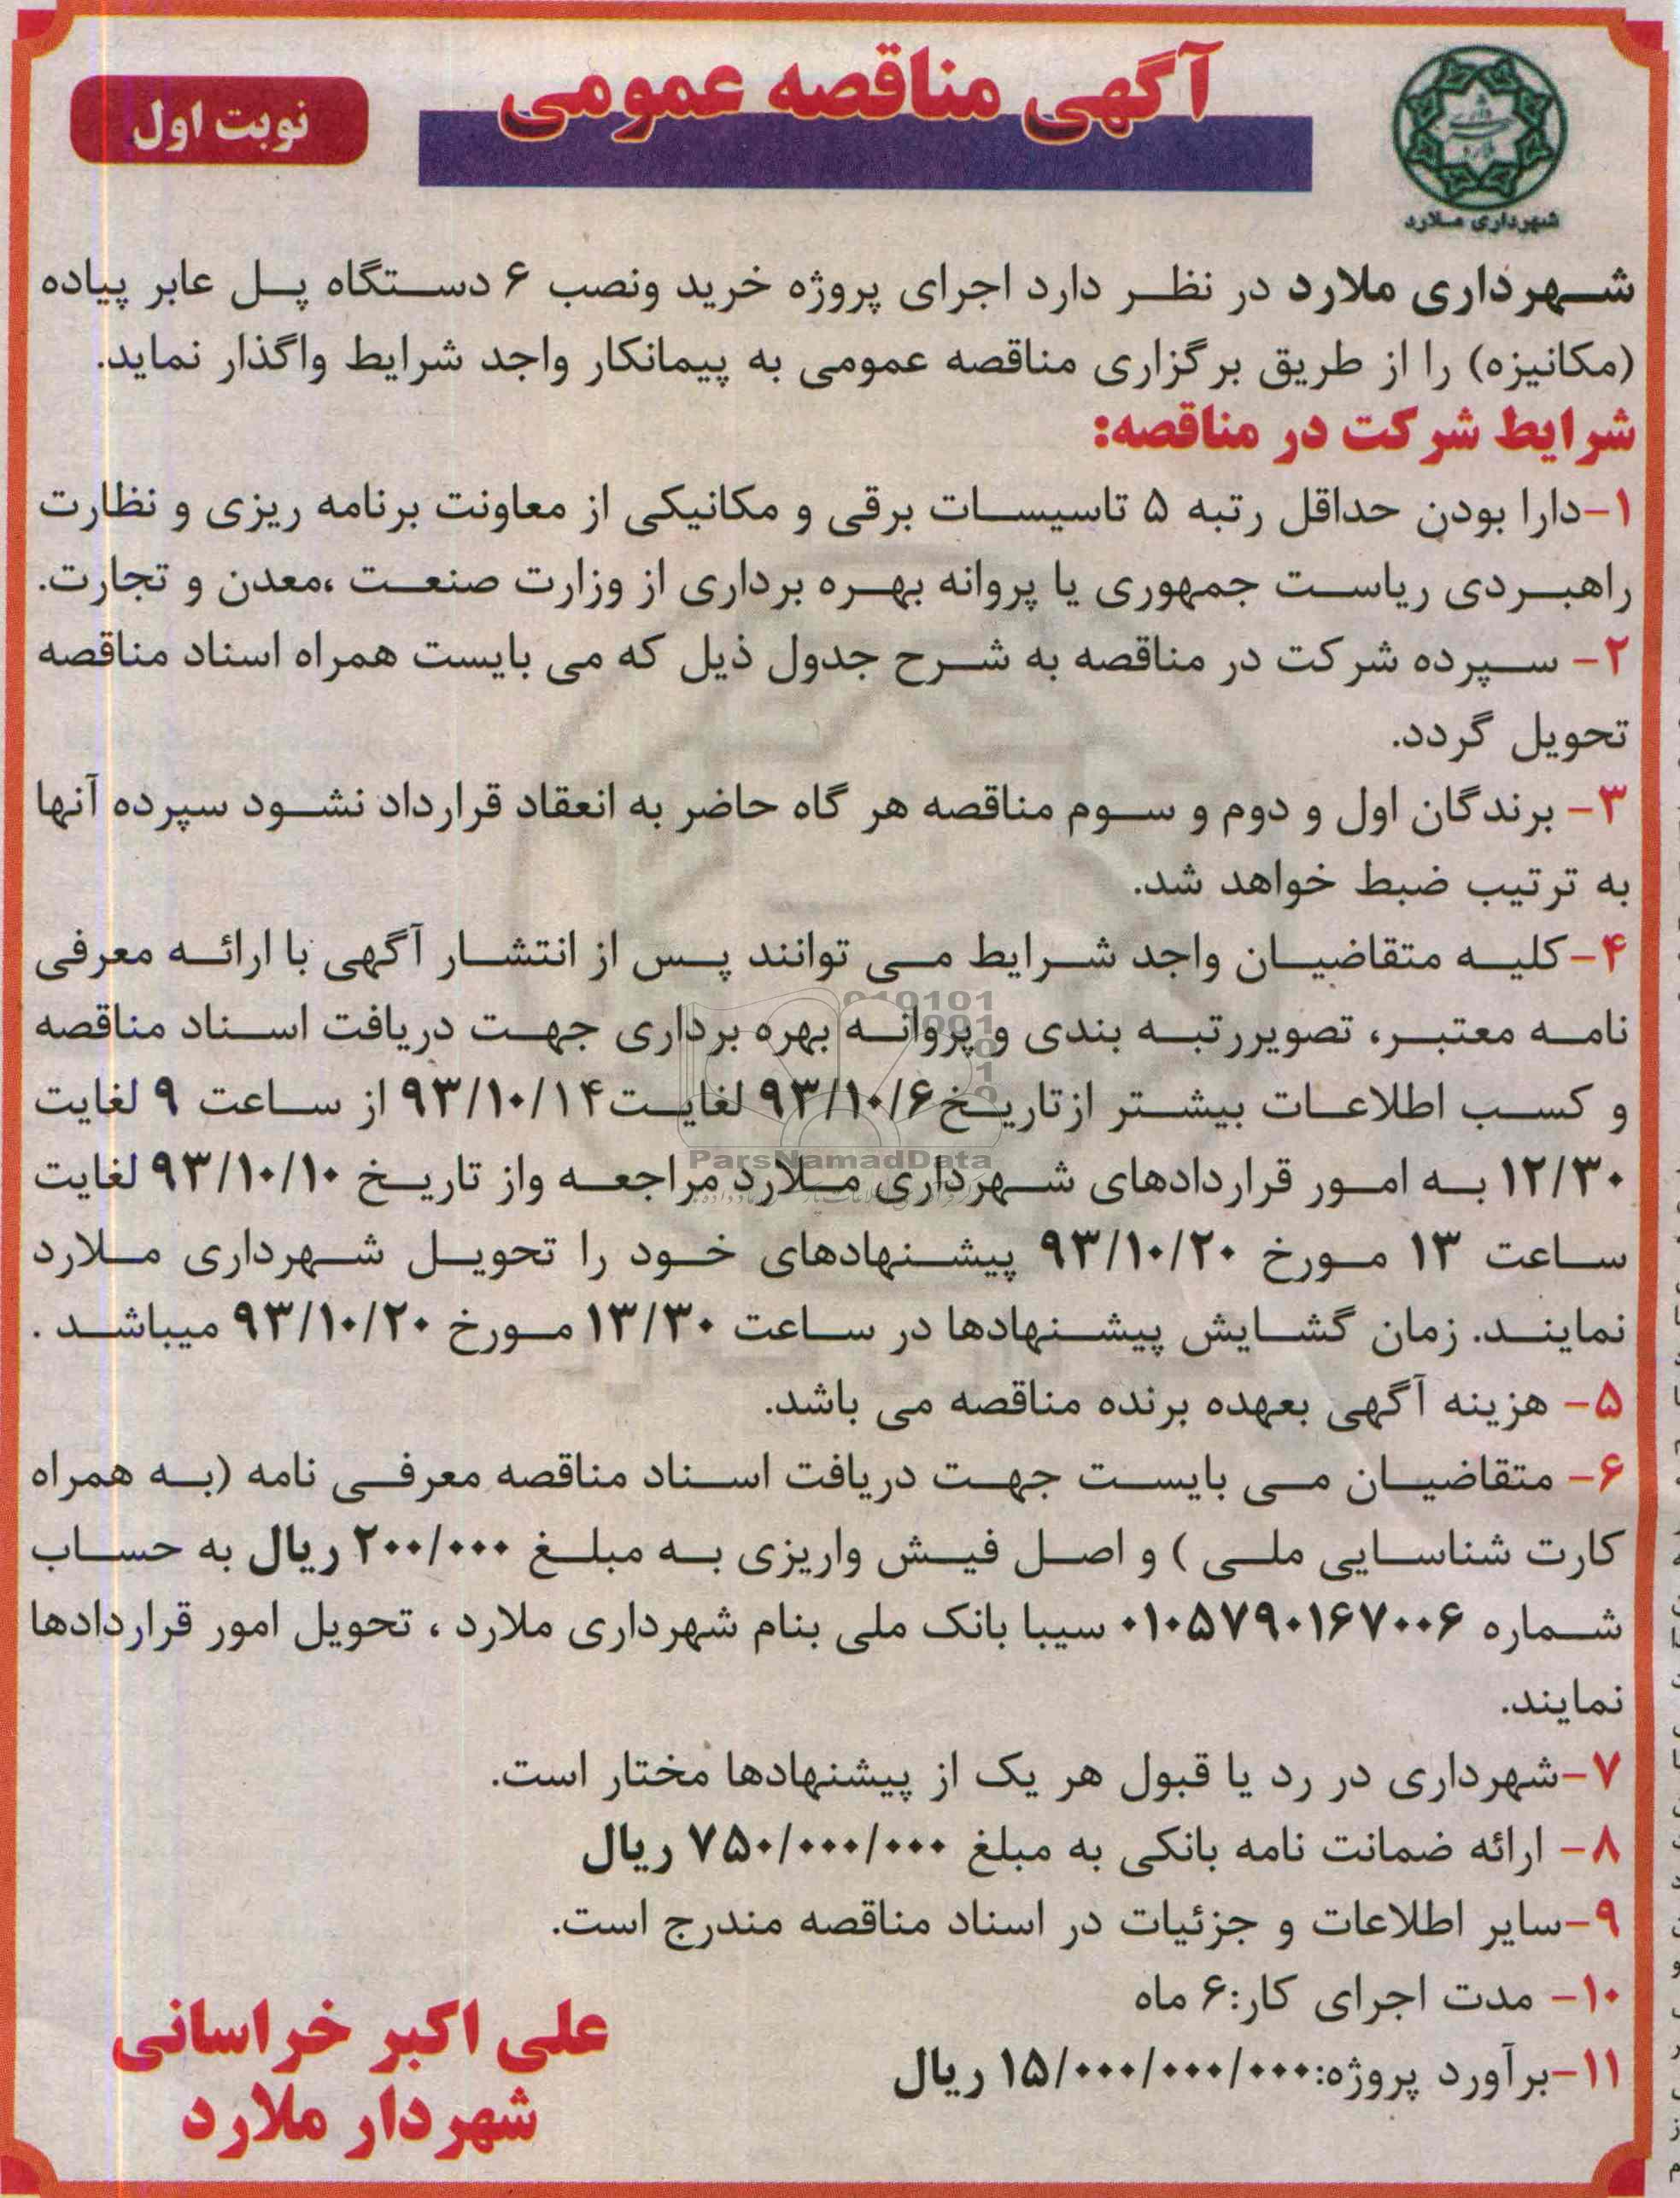 آگهی مناقصه عمومی
نوبت اول
شهرداری ملارد
شهرداری ملارد در نظر دارد اجرای پروژه خرید ونصب ۶ دستگاه پل عابر پیاده
(مکانیزه) را از طریق برگزاری مناقصه عمومی به پیمانکار واجد شرایط واگذار نماید.
شرایط شرکت در مناقصه:
۱-دارا بودن حداقل رتبه ۵ تاسیسات برقی و مکانیکی از معاونت برنامه ریزی و نظارت
راهبردی ریاست جمهوری یا پروانه بهره برداری از وزارت صنعت ،معدن و تجارت.
۲- سپرده شرکت در مناقصه به شرح جدول ذیل که می بایست همراه اسناد مناقصه
تحویل گردد.
۳- برندگان اول و دوم و سوم مناقصه هر گاه حاضر به انعقاد قرارداد نشود سپرده آنها
به ترتیب ضبط خواهد شد.
۴-کلیه متقاضیان واجد شرایط می توانند پس از انتشار آگهی با ارائه معرفی
نامه معتبر، تصویررتبه بندی و پروانه بهره برداری جهت دریافت اسناد مناقصه
و کسب اطلاعات بیشتر ازتاریخ ۹۳/۱۰/۶ لغایت ۹۳/۱۰/۱۴ از ساعت ۹ لغایت
۱۲/۳۰ به امور قراردادهای شهرداری ملارد مراجعه واز تاریخ ۹۳/۱۰/۱۰ لغایت
ساعت ۱۳ مورخ ۹۳/۱۰/۲۰ پیشنهادهای خود را تحویل شهرداری ملارد
نمایند. زمان گشایش پیشنهادها در ساعت ۱۳/۳۰ مورخ ۹۳/۱۰/۲۰ میباشد .
۵- هزینه آگهی بعهده برنده مناقصه می باشد.
۶- متقاضیان می بایست جهت دریافت اسناد مناقصه معرفی نامه (به همراه
کارت شناسایی ملی ) و اصل فیش واریزی به مبلغ ۲۰۰/۰۰۰ ریال به حساب
شماره ۰۱۰۵۷۹۰۱۶۷۰۰۶ سیبا بانک ملی بنام شهرداری ملارد ، تحویل امور قراردادها
نمایند.
۷-شهرداری در رد یا قبول هر یک از پیشنهادها مختار است.
۸- ارائه ضمانت نامه بانکی به مبلغ ۷۵۰/۰۰۰/۰۰۰ ریال
۹-سایر اطلاعات و جزئیات در اسناد مناقصه مندرج است.
۱۰- مدت اجرای کار:۶ ماه
۱۱-برآورد پروژه:۱۵/۰۰۰/۰۰۰/۰۰۰ ریال
علی اکبر خراسانی
شهردار ملارد
ParsNamadData